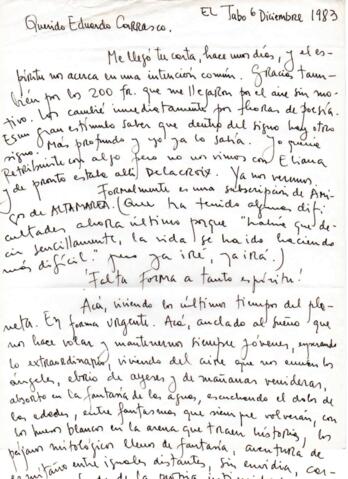 EL Tabo 6 Diciembre 1983
Querido Eduardo Carrasco.
Me llegó tu carta, hace unos días, y el es-
píritu nos acerca en una intención común. Gracias tam-
bién por los 200 fr. que me llegaron por el aire sin mo-
tivo. Los cambié inmediatamente por flores de poesía.
Es un gran estímulo saber que dentro del signo hay otro
signo más profundo y yo ya lo sabía. Yo quería
Retribuirte con algo pero no nos vimos con Eliana
y de pronto estaba allá Delacroix. Ya nos veremos.
Formalmente es una subscripción de Ami-
gos de ALTAMAREA. (Que ha tenido algunas difi-
cultades ahora último porque "había que de-
cir sencillamente, la vida se ha ido haciendo
más difícil" pero ya iré, ya irá.)
¡Falta forma a tanto espíritu!
Acá, viviendo los últimos tiempos del pla-
neta. En forma urgente. Acá, anclado al sueño que
nos hace volar y mantenernos siempre jóvenes,
lo extraordinario, viviendo del aire que nos envían los
ángeles, ebrio de ayeres y de mañanas venideras,
absorto en la fantasía de las aguas, escuchando el dolor de
las edades, entre fantasmas que siempre volverán, con
los huesos blancos en la arena que traen historias, los
pájaros mitológicos llenos de fantasía, aventura de
ermitaño entre iguales distantes, sin envidia, cor-